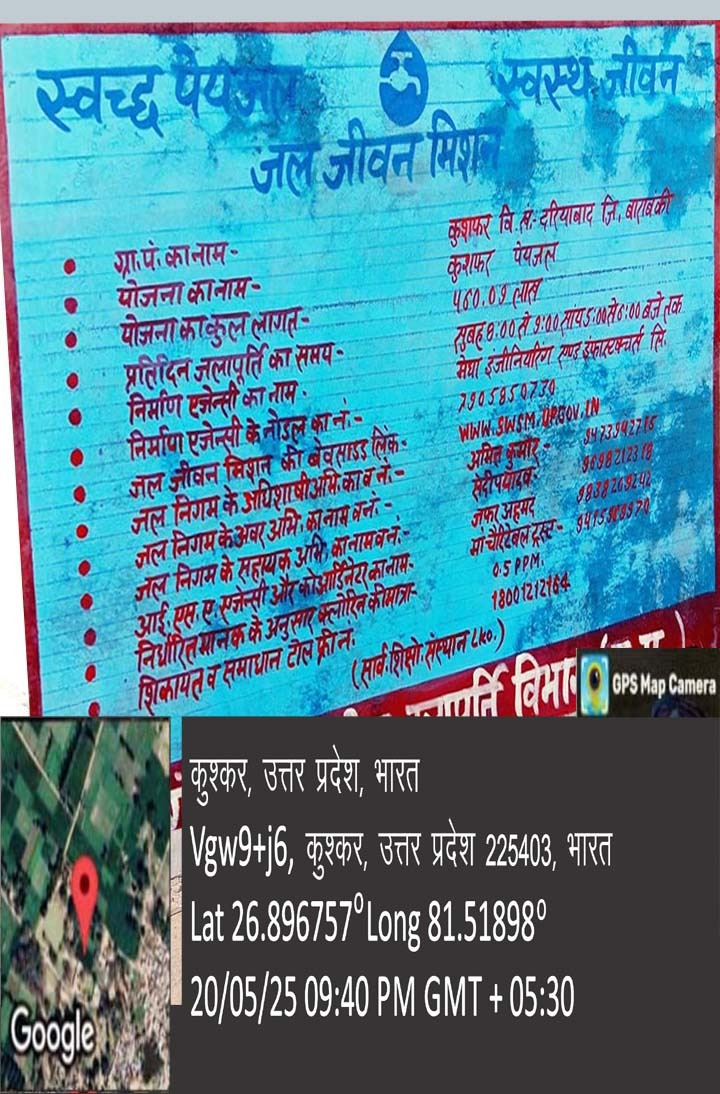 स्वच्छ पेयजल स्वस्थ जीवन
जल जीवन मिशन
ग्रा.पं. का नाम - कुशफर वि.ख.- दरियाबाद जि. बाराबंकी
योजना का नाम - कुशफर पेयजल
योजना का कुल लागत - 460.09 लाख
प्रतिदिन जलापूर्ति का समय - सुबह 8:00 से 9:00 सांय 5:00 से 6:00 बजे तक
निर्माण एजेन्सी का नाम - मेघा इंजीनियरिंग एण्ड इंफ्रास्ट्रक्चर्स लि.
निर्माण एजेन्सी के नोडल का नं.- 7905850730
जल जीवन मिशन की बेवसाइड लिंक- WWW.SWSM.UP.GOV.IN
जल निगम के अधिशाषी अभि. का व नं.- अमित कुमार - 9473942715
जल निगम के अवर अभि. का नाम व नं.- संदीप यादव-
जल निगम के सहायक अभि. का नाम व नं.- जफर अहमद
आई.एस.ए. एजेन्सी और कोआर्डिनेटर का नाम- मां चैरिटेबल ट्रस्ट-
निर्धारित मानक के अनुसार क्लोरिन की मात्रा- 0.5 PPM.
शिकायत व समाधान टोल फ्री नं. 18001212164
(सार्व. शिक्षो. संस्थान Lko.)
GPS Map Camera
कुश्कर, उत्तर प्रदेश, भारत
Vgw9+j6, कुश्कर, उत्तर प्रदेश 225403, भारत
Lat 26.896757° Long 81.51898°
20/05/25 09:40 PM GMT + 05:30
Google